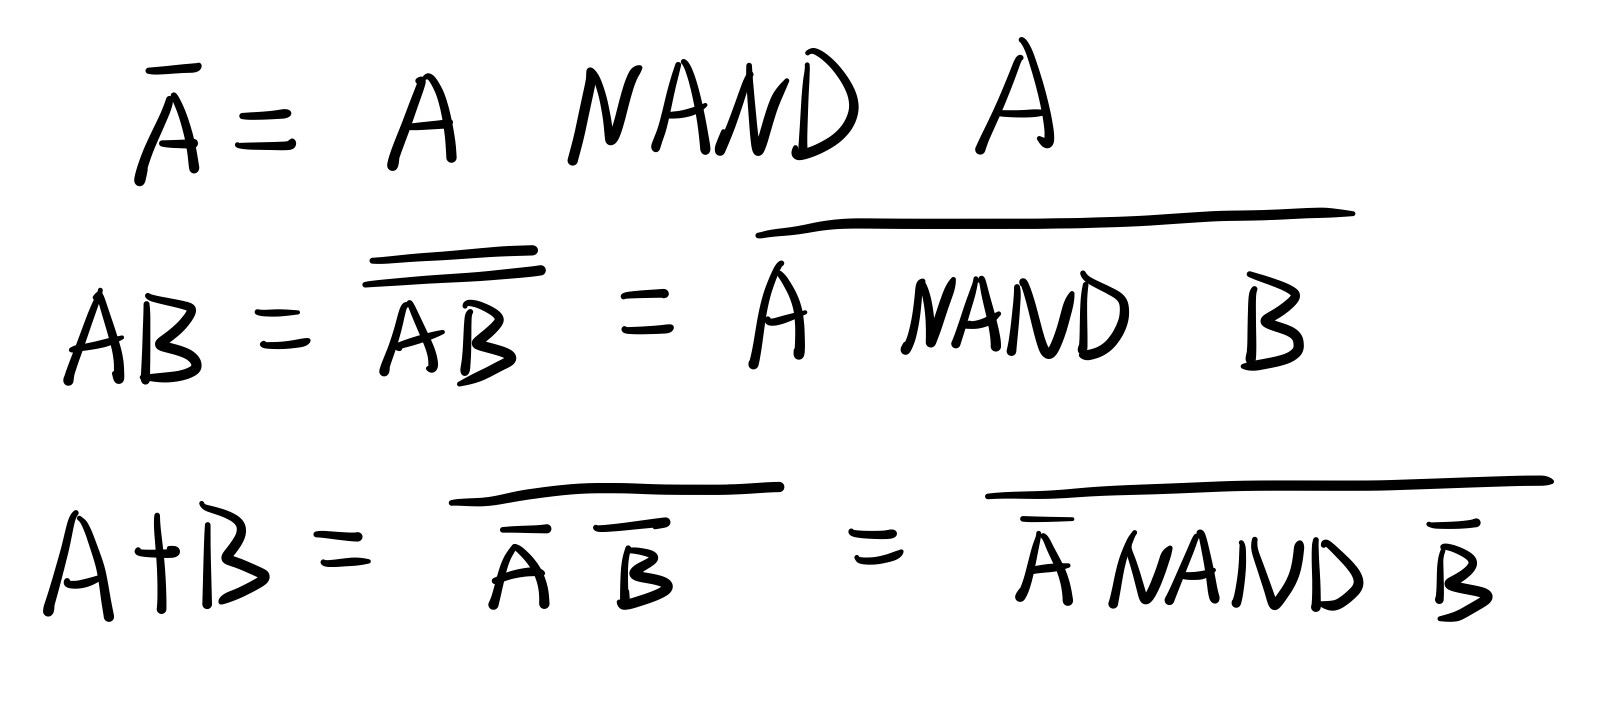 A̅ = A NAND A
AB = \overline{\overline{AB}} = \overline{A NAND B}
A+B = \overline{\overline{A} \overline{B}} = \overline{\overline{A} NAND \overline{B}}